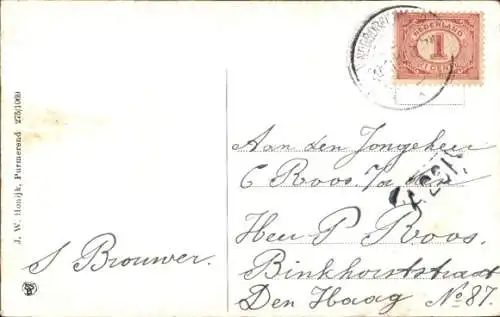 J. W. Honijk, Purmerend 275/1069
S Brouwer.
NEDERLAND
1
CENT
Aan den Jongeheer
C Roos. 7/a
Heer P Roos.
Binkhorststraat
Den Haag No 87.